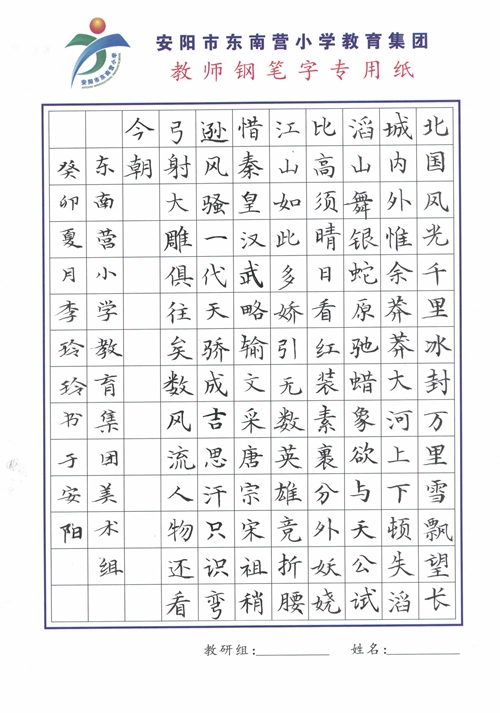 安阳市东南营小学
安阳市东南营小学教育集团
教师钢笔字专用纸
北国风光千里冰封万里雪飘望长
城内外惟余莽莽大河上下顿失滔
滔山舞银蛇原驰蜡象欲与天公试
比高须晴日看红装素裹分外妖娆
江山如此多娇引无数英雄竞折腰
惜秦皇汉武略输文采唐宗宋祖稍
逊风骚一代天骄成吉思汗只识弯
弓射大雕俱往矣数风流人物还看
今朝
东南营小学教育集团美术组
癸卯夏月李玲玲书于安阳
教研组:
姓名: